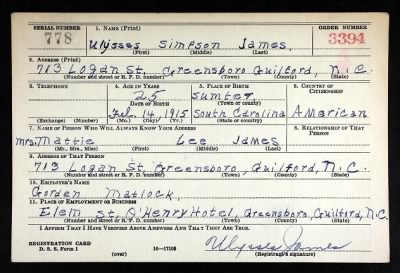 SERIAL NUMBER 1. NAME (Print) ORDER NUMBER
778 Ulysses Simpson James, 3394
(First) (Middle) (Last)
2. ADDRESS (Print)
713 Logan St. Greensboro, Guilford, N.C.
(Number and street or R. F. D. number) (Town) (County) (State)
3. TELEPHONE 4. AGE IN YEARS 5. PLACE OF BIRTH 6. COUNTRY OF CITIZENSHIP
25 Sumter
DATE OF BIRTH (Town or county)
Feb. 14, 1915 South Carolina American
(Exchange) (Number) (Mo.) (Day) (Yr.) (State or country)
7. NAME OF PERSON WHO WILL ALWAYS KNOW YOUR ADDRESS RELATIONSHIP OF THAT PERSON
Mrs. Mattie Lee James
(Mr., Mrs., Miss) (First) (Middle) (Last)
9. ADDRESS OF THAT PERSON
713 Logan St. Greensboro, Guilford, N.C.
(Number and street or R. F. D. number) (Town) (County) (State)
10. EMPLOYER'S NAME
Gorden Matlock,
11. PLACE OF EMPLOYMENT OR BUSINESS
Elem St. O'Henry Hotel, Greensboro, Guilford, N.C.
(Number and street or R. F. D. number) (Town) (County) (State)
I AFFIRM THAT I HAVE VERIFIED ABOVE ANSWERS AND THAT THEY ARE TRUE.
REGISTRATION CARD
D. S. S. Form 1 16—17105 Ulysses James
(over) (Registrant's signature)